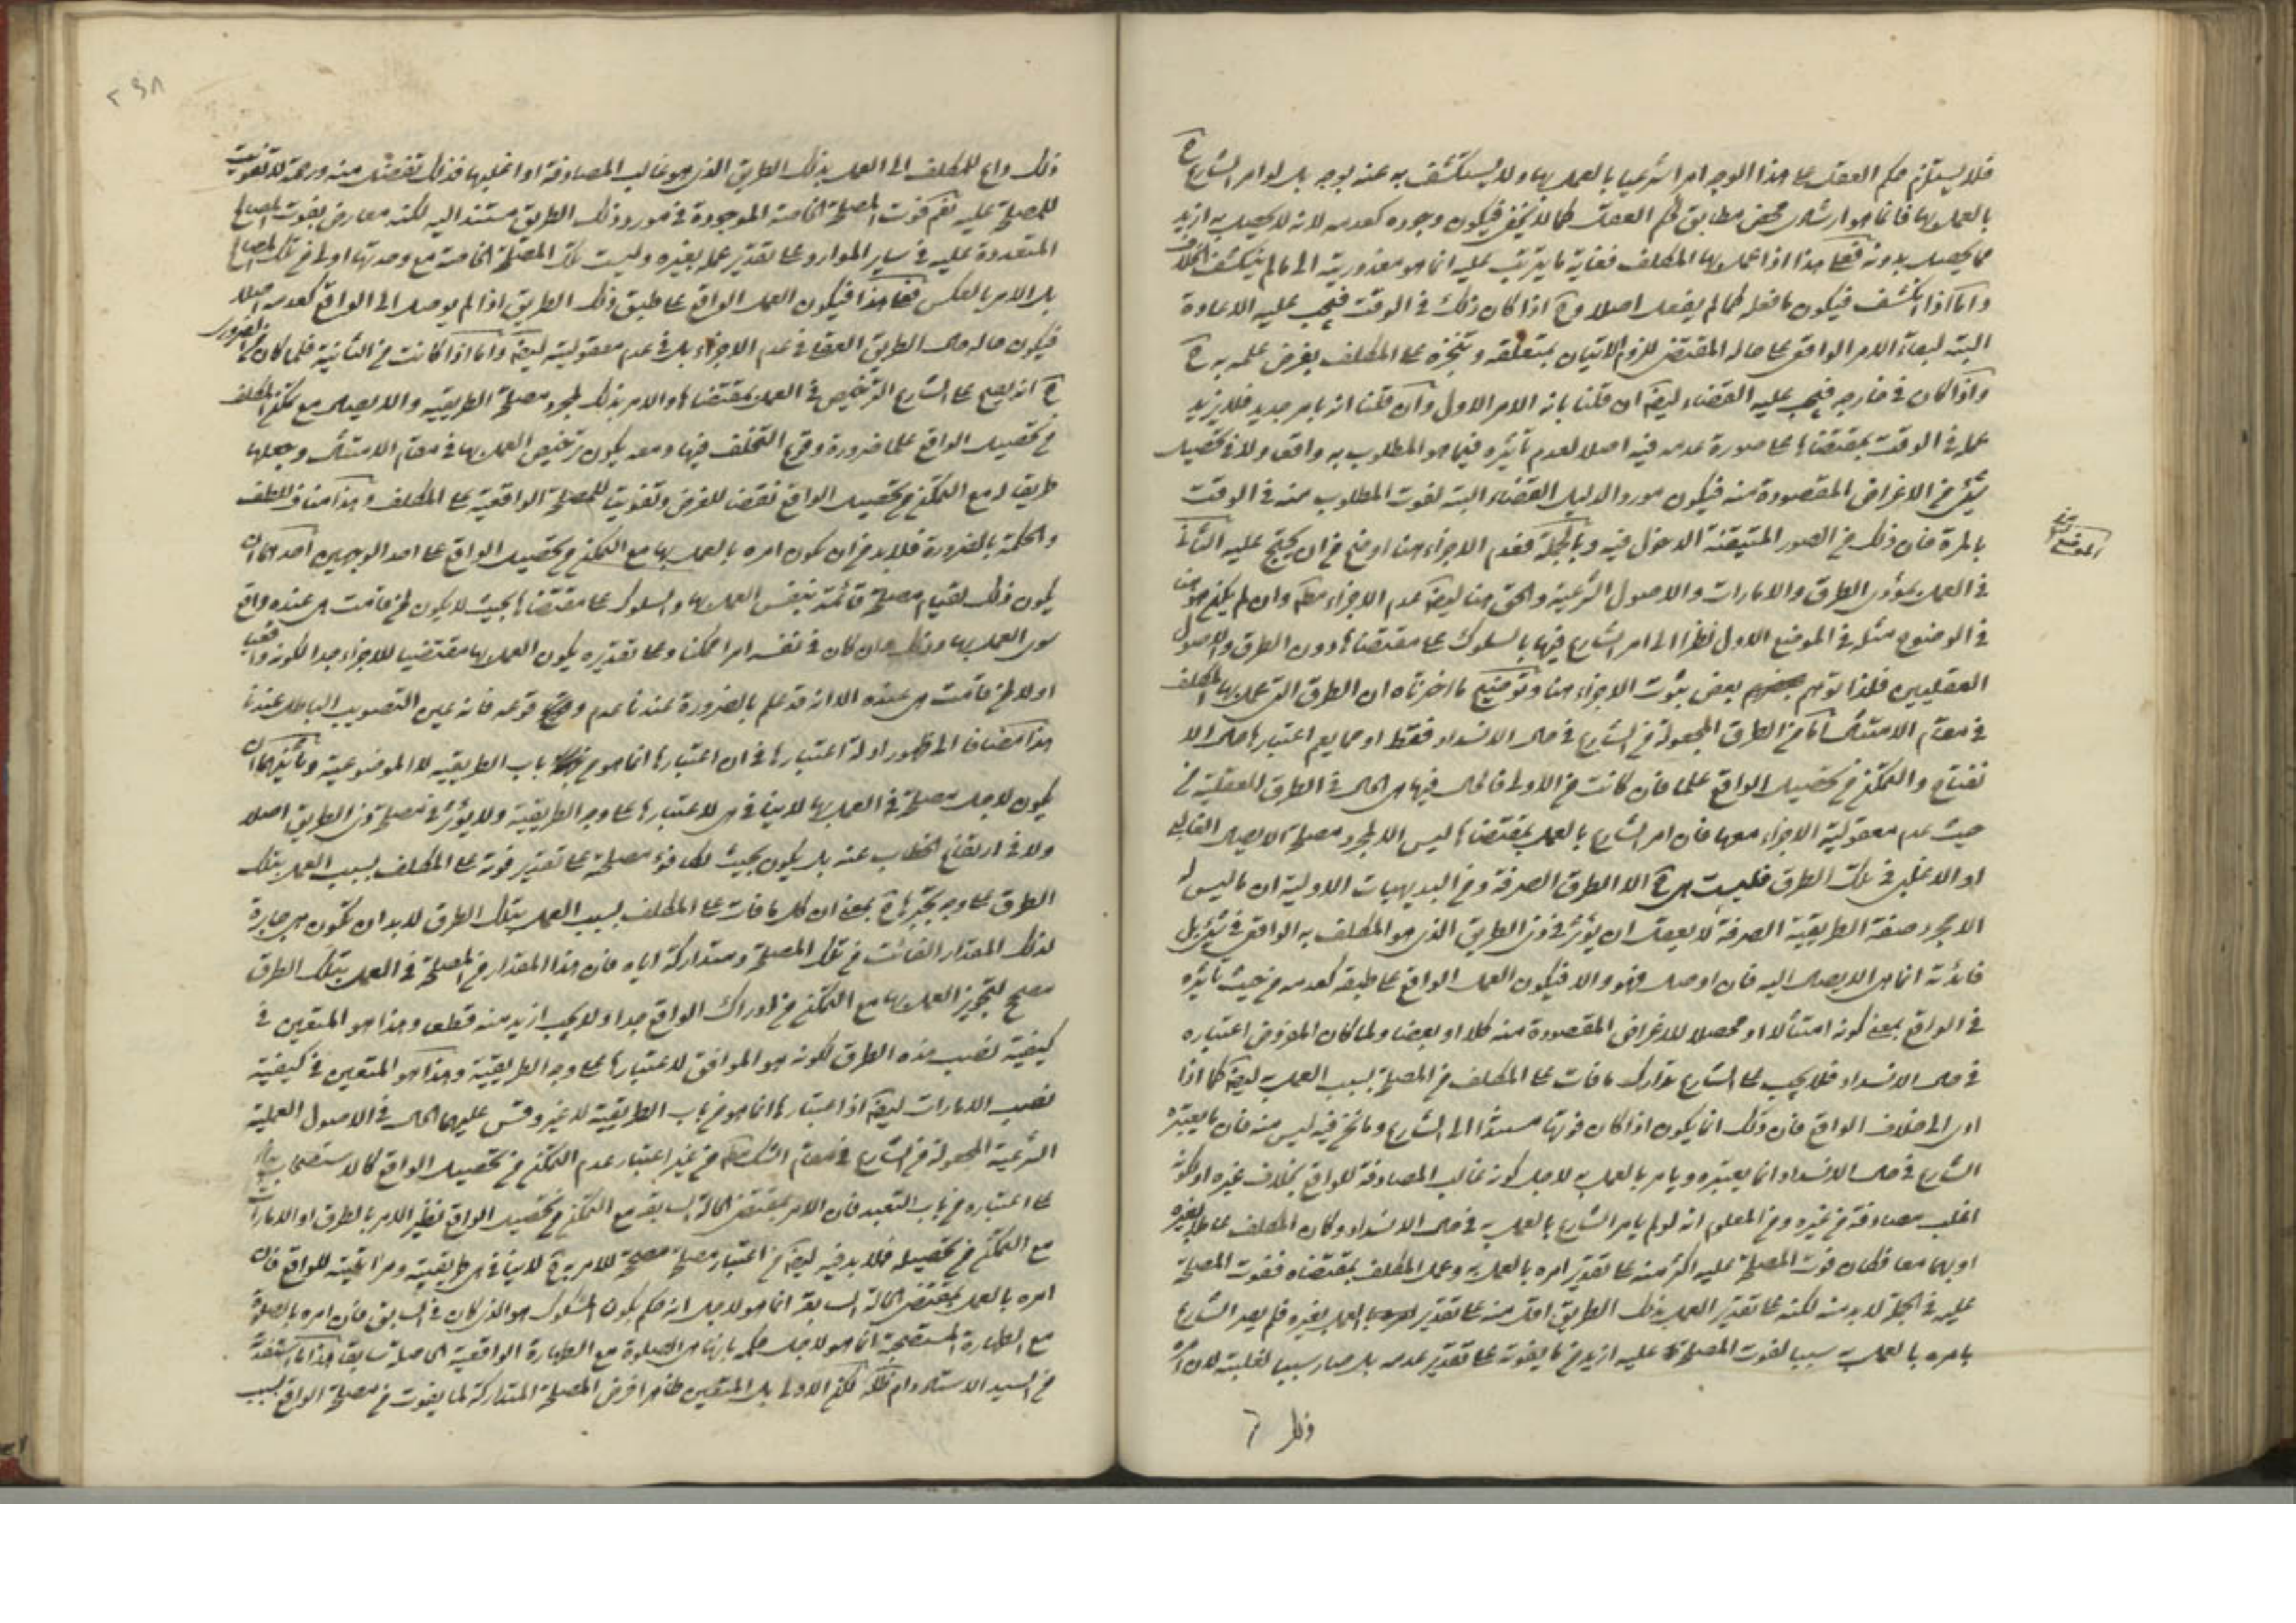 فلا يستلزم حكم العقل على هذا الوجه امرا شرعيا بالعمل بها ولا يستكشف به عنه بوجه بل لو امر الشارع ح
بالعمل بها فانما هو ارشادى محض مطابق لحكم العقل كما لا يخفى فيكون وجوده كعدمه لانه لا يحصل به ازيد
مما يحصل بدونه فعلى هذا اذا عمل بها المكلف فغاية ما يترتب عليه انما هو معذوريته الى ما لم ينكشف الخلاف
واما اذا انكشف فيكون ما فعله كما لم يفعل اصلا وح اذا كان ذلك فى الوقت فيجب عليه الاعادة
البتة لبقاء الامر الواقعى على حاله المقتضى للزوم الاتيان بمتعلقه وتنجزه على المكلف بفرض علمه به ح
واذا كان فى خارجه فيجب عليه القضاء ايضا ان قلنا بانه الامر الاول وان قلنا انه بامر جديد فلا يزيد
عمله فى الوقت بمقتضاها على صورة عدمه فيه اصلا لعدم تأثيره فيما هو المطلوب به واقعا ولا فى تحصيل
شئ من الاغراض المقصودة منه فيكون مورد الدليل القضاء البتة لفوت المطلوب منه فى الوقت
بالمرة فان ذلك من الصور المتيقنة الدخول فيه وبالجملة فعدم الاجزاء هنا اوضح من ان يحتج عليه الثانى
الموضع
فى العمل بمؤدى الطرق والامارات والاصول الشرعية والحق هنا ايضا عدم الاجزاء مطلقا وان لم يكن هو هنا
فى الوضوح مثله فى الموضع الاول نظرا الى امر الشارع فيها بالسلوك على مقتضاها دون الطرق والاصول
العقليين فلذا توهم بعض ثبوت الاجزاء هنا وتوضيح ما اخترناه ان الطرق التى عمل بها المكلف
فى مقام الامتثال اما من الطرق المجعولة من الشارع فى حال الانسداد فقط او مما يعم اعتبارها حال الا
نفتاح والتمكن من تحصيل الواقع علما فان كانت من الاولى فالحال فيها هى الحال فى الطرق العقلية من
حيث عدم معقولية الاجزاء معها فان امر الشارع بالعمل بمقتضاها ليس الا لمجرد مصلحة الايصال الغالب
او الاغلبى فى تلك الطرق فليست هى ح الا الطرق الصرفة ومن البديهيات الاولية ان ما ليس له
الا مجرد صفة الطريقية الصرفة لا يعقل ان يؤثر فى ذى الطريق الذى هو المكلف به الواقعى فى شئ بل
فائدته انما هى الايصال اليه فان اوصل فهو والا فيكون العمل الواقع على طبقه كعدمه من حيث تأثيره
فى الواقع بمعنى كونه امتثالا او محصلا للاغراض المقصودة منه كلا او بعضا ولما كان المفروض اعتباره
فى حال الانسداد فلا يجب على الشارع تدارك ما فات على المكلف من المصلحة بسبب العمل به ايضا كما اذا
ادى الى خلاف الواقع فان ذلك انما يكون اذا كان فوتها مستندا الى الشارع وما نحن فيه ليس منه فان ما يعتبره
الشارع فى حال الانسداد انما يعتبره ويامر بالعمل به لاجل كونه غالب المصادفة للواقع بخلاف غيره او كونه
اغلب مصادفة من غيره ومن المعلوم انه لو لم يامر الشارع بالعمل به فى حال الانسداد وكان المكلف عاملا بغيره
او بهما معا فكان فوت المصلحة عليه اكثر منه على تقدير امره بالعمل به وعمل المكلف بمقتضاه ففوت المصلحة
عليه فى الجملة لا بد منه لكنه على تقدير العمل بذلك الطريق اقل منه على تقدير العمل بغيره فلم يصر الشارع
بامره بالعمل به سببا لفوت المصلحة عليه ازيد من ما يفوته على تقدير عدمه بل صار سببا لغلبته لان امره
ذلك
٢٩٨
ذلك داع للمكلف الى العمل بذلك الطريق الذى هو غالب المصادفة او اغلبها فذلك تفضل منه ورحمة لا تفويت
للمصلحة عليه نعم فوت المصلحة الخاصة الموجودة فى مورد ذلك الطريق مستند اليه لكنه معارض بفوت المصالح
المتعددة عليه فى ساير الموارد على تقدير عمله بغيره وليست تلك المصلحة الخاصة مع وحدتها اولى من تلك المصالح
بل الامر بالعكس فعلى هذا فيكون العمل الواقع على طبق ذلك الطريق اذا لم يوصل الى الواقع كعدمه اصلا
فيكون حاله حال الطريق العقلى فى عدم الاجزاء بل فى عدم معقوليته ايضا واما اذا كانت من الثانية فلما كان من الضرورى
ح انه يقبح على الشارع الترخيص فى العمل بمقتضاها والامر بذلك لمجرد مصلحة الطريقية والايصال مع تمكن المكلف
من تحصيل الواقع علما ضرورة وقوع التخلف فيها ومعه يكون ترخيص العمل بها فى مقام الامتثال وجعلها
طريقا له مع التمكن من تحصيل الواقع نقضا للغرض وتفويتا للمصلحة الواقعية على المكلف وهذا مناف للطف
والحكمة بالضرورة فلا بد من ان يكون امره بالعمل بها مع التمكن من تحصيل الواقع على احد الوجهين احدهما ان
يكون ذلك لقيام مصلحة قائمة بنفس العمل بها والسلوك على مقتضاها بحيث لا يكون لمن قامت هى عنده واقع
سوى العمل بها وذلك وان كان فى نفسه امرا ممكنا وعلى تقديره يكون العمل بها مقتضيا للاجزاء جدا لكونه واقعيا
اوليا لمن قامت هى عنده الا انه قد علم بالضرورة عندنا عدم وقوعه فانه عين التصويب الباطل عندنا
هذا مضافا الى ظهور ادلة اعتبارها فى ان اعتبارها انما هو من باب الطريقية لا الموضوعية وثانيهما ان
يكون لاجل مصلحة فى العمل بها لا ينافى هى لاعتبارها على وجه الطريقية ولا يؤثر فى مصلحة ذى الطريق اصلا
ولا فى ارتفاع الخطاب عنه بل يكون بحيث تكافؤ مصلحته على تقدير فوته على المكلف بسبب العمل بتلك
الطرق على وجه يجبرها ح بمعنى ان كل ما فات على المكلف بسبب العمل بتلك الطرق لا بد ان تكون هى جابرة
لذلك المقدار الفائت من تلك المصلحة ومتداركة اياه فان هذا المقدار من المصلحة فى العمل بتلك الطرق
مصحح لتجويز العمل بها مع التمكن من ادراك الواقع جدا ولا يجب ازيد منه قطعا وهذا هو المتعين فى
كيفية نصب هذه الطرق لكونه هو الموافق لاعتبارها على وجه الطريقية وهذا هو المتعين فى كيفية
نصب الامارات ايضا اذ اعتبارها انما هو من باب الطريقية لا غير وقس عليهما الحال فى الاصول العملية
الشرعية المجعولة من الشارع فى مقام الشك مطلقا من غير اعتبار عدم التمكن من تحصيل الواقع كالاستصحاب بناء
على اعتباره من باب التعبد فان الامر بمقتضى الحالة السابقة مع التمكن من تحصيل الواقع نظير الامر بالطرق او الامارات
مع التمكن من تحصيله فلا بد فيه ايضا من اعتبار مصلحة مصححة للامر به ح لا ينافى هى طريقيته ومراتيته للواقع فان
امره بالعمل بمقتضى الحالة السابقة انما هو لاجل انه حكم بكون المشكوك هو الذى كان فى السابق فان امره بالصلوة
مع الطهارة المستصحبة انما هو لاجل حكمه بانها هى الصلوة مع الطهارة الواقعية الحاصلة سابقا هذا ما استفدته
من السيد الاستاد دام ظله لكن الاولى بل المتعين ظاهرا فرض المصلحة المتداركة لما يفوت من مصلحة الواقع بسبب